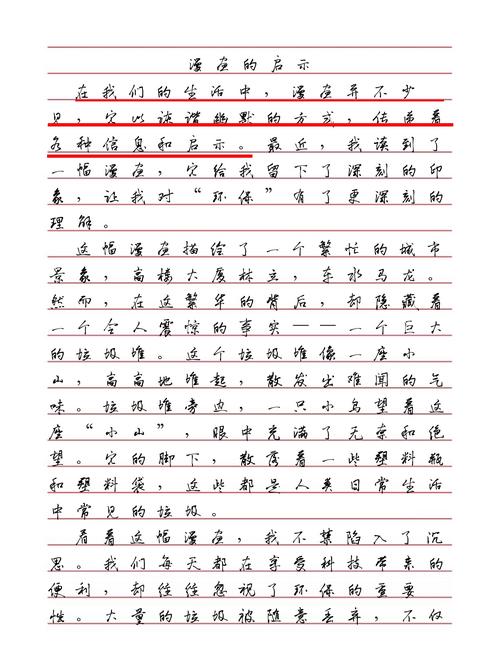 漫画的启示
在我们的生活中，漫画并不少
见，它以诙谐幽默的方式，传递着
各种信息和启示。最近，我读到了
一幅漫画，它给我留下了深刻的印
象，让我对“环保”有了更深刻的
理解。
这幅漫画描绘了一个繁忙的城市
景象，高楼大厦林立，车水马龙。
然而，在这繁华的背后，却隐藏着
一个令人震惊的事实——一个巨大
的垃圾堆。这个垃圾堆像一座小
山，高高地堆起，散发出难闻的气
味。垃圾堆旁边，一只小鸟望着这
座“小山”，眼中充满了无奈和绝
望。它的脚下，散落着一些塑料瓶
和塑料袋，这些都是人类日常生活
中常见的垃圾。
看着这幅漫画，我不禁陷入了沉
思。我们每天都在享受科技带来的
便利，却往往忽视了环保的重要
性。大量的垃圾被随意丢弃，不仅